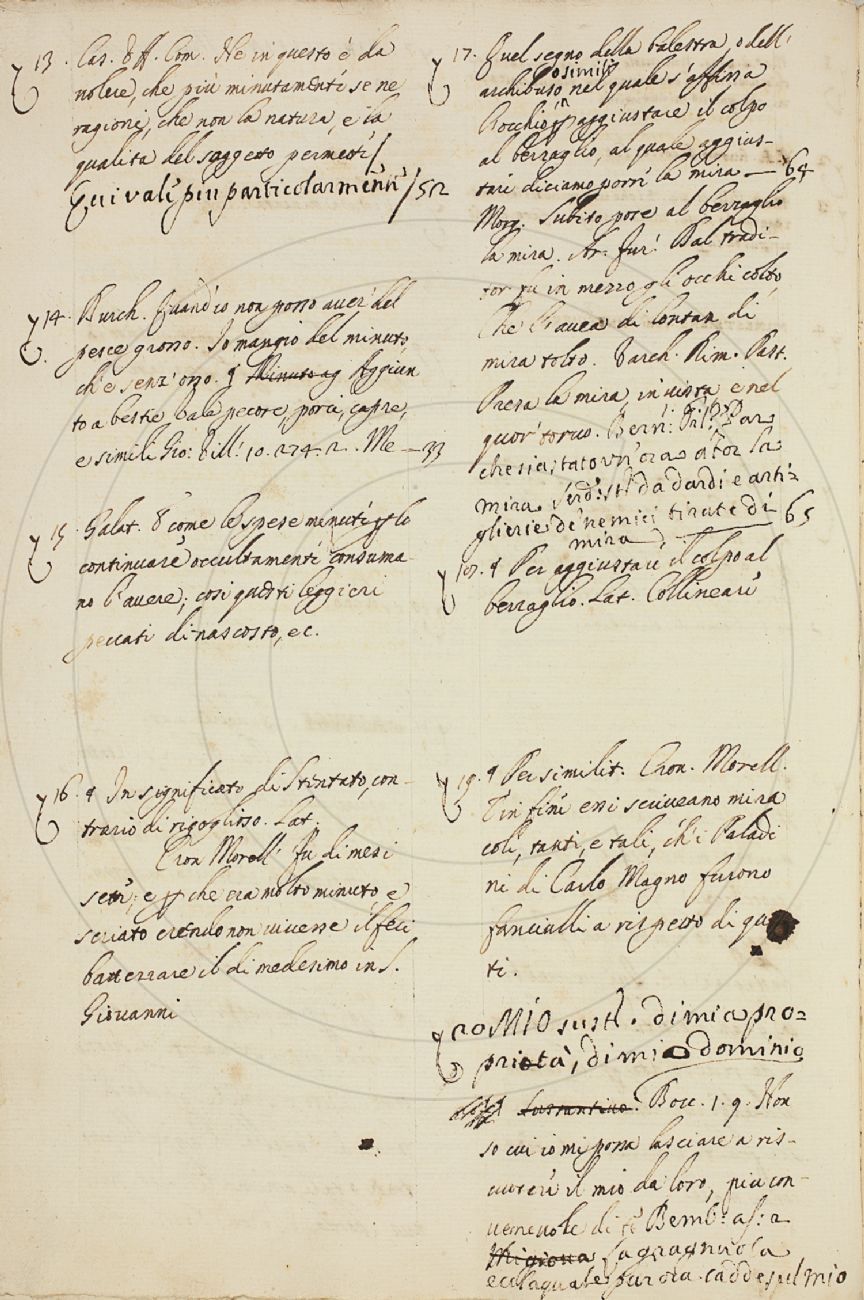 13. Cas. Uff. Com. Ne in questo è da
volere, che più minutamente se ne
ragioni, che non la natura, e la
qualità del suggetto permette/
Qui vale piu particolarmente/52
14. Burch. Quand'io non posso aver' del
pesce grosso. Io mangio del minuto,
ch'è senz' osso. ¶ Minuto ag Aggiun
to a bestie vale pecore, porci, capre,
e simili Gio: Vill: 10. 274. 2. Me — 33
15. Galat. E come le spese minute per lo
continuare occultamente consuma-
no l'avere; così questi leggieri
peccati di nascosto, ec.
16. ¶ In significato di Stentato, con-
trario di rigoglioso. Lat.
Cron Morell: Fu di mesi
sette, e per che era molto minuto, e
seriato credendo non vivesse il feci
battezzare il dì medesimo in S.
Giovanni
17. Quel segno della balestra, o dell'
archibuso o simili nel quale s'affissa
l'occhio per aggiustare il colpo
al berzaglio, al quale aggius-
tare diciamo porre la mira — 64
Morg. Subito pose al berzaglio
la mira. Ar. Fur. Dal tradi-
tor fu in mezzo gli occhi colto,
Che l'avea di lontan di
mira tolto. Varch. Rim. Past.
Presa la mira, in vista, e nel
quor' torvo. Bern:
che sia stato un' ora a tor la
mira. Serd: st: da dardi e arti-
glierie de' nemici tirate di 65
mira
18. ¶ Per aggiustare il colpo al
berzaglio. Lat. Collineare
19. ¶ Per similit. Cron. Morell.
E in fine essi scriveano mira
coli, tanti, e tali, ch'i Paladi
ni di Carlo Magno furono
fanciulli a rispetto di ques
ti.
20 MIO sust. di mia pro-
prietà, di mio dominio
sustantivo. Bocc. 1. 9. Non
so cui io mi possa lasciare a ris-
cuotere il mio da loro, più con-
venevole di te Bemb: as: 2
la gragnuola
e cade sul mio